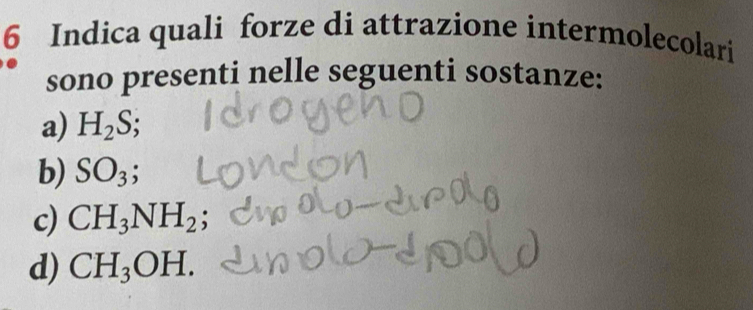 6 Indica quali forze di attrazione intermolecolari
sono presenti nelle seguenti sostanze:
a) H₂S; Idrogeno
b) SO₃; London
c) CH₃NH₂; dipolo-dipolo
d) CH₃OH. dipolo-dipolo